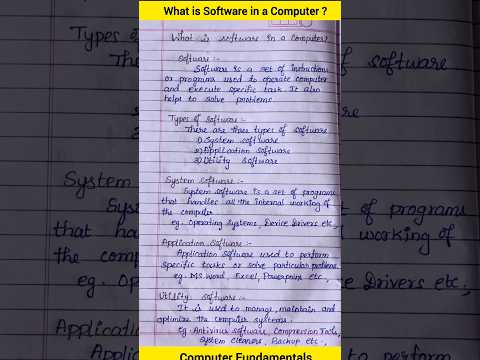 What is Software in a Computer ?
What is software in a Computer?
Software :-
Software is a set of instructions
or programs used to operate computer
and execute specific task. It also
helps to solve problems
Types of software :-
There are three types of software
1) System software
2) Application software
3) Utility software
System Software :-
System software is a set of programs
that handles all the internal working of
the computer
eg. Operating Systems, Device Drivers etc,
Application Software :-
Application software used to perform
specific tasks or solve particular problems
eg. MS Word, Excel, Powerpoint etc,
Utility Software :-
It is used to manage, maintain and
optimize the computer systems.
eg. Antivirus software, Compression Tools,
System cleaners, Backup etc,
Computer Fundamentals